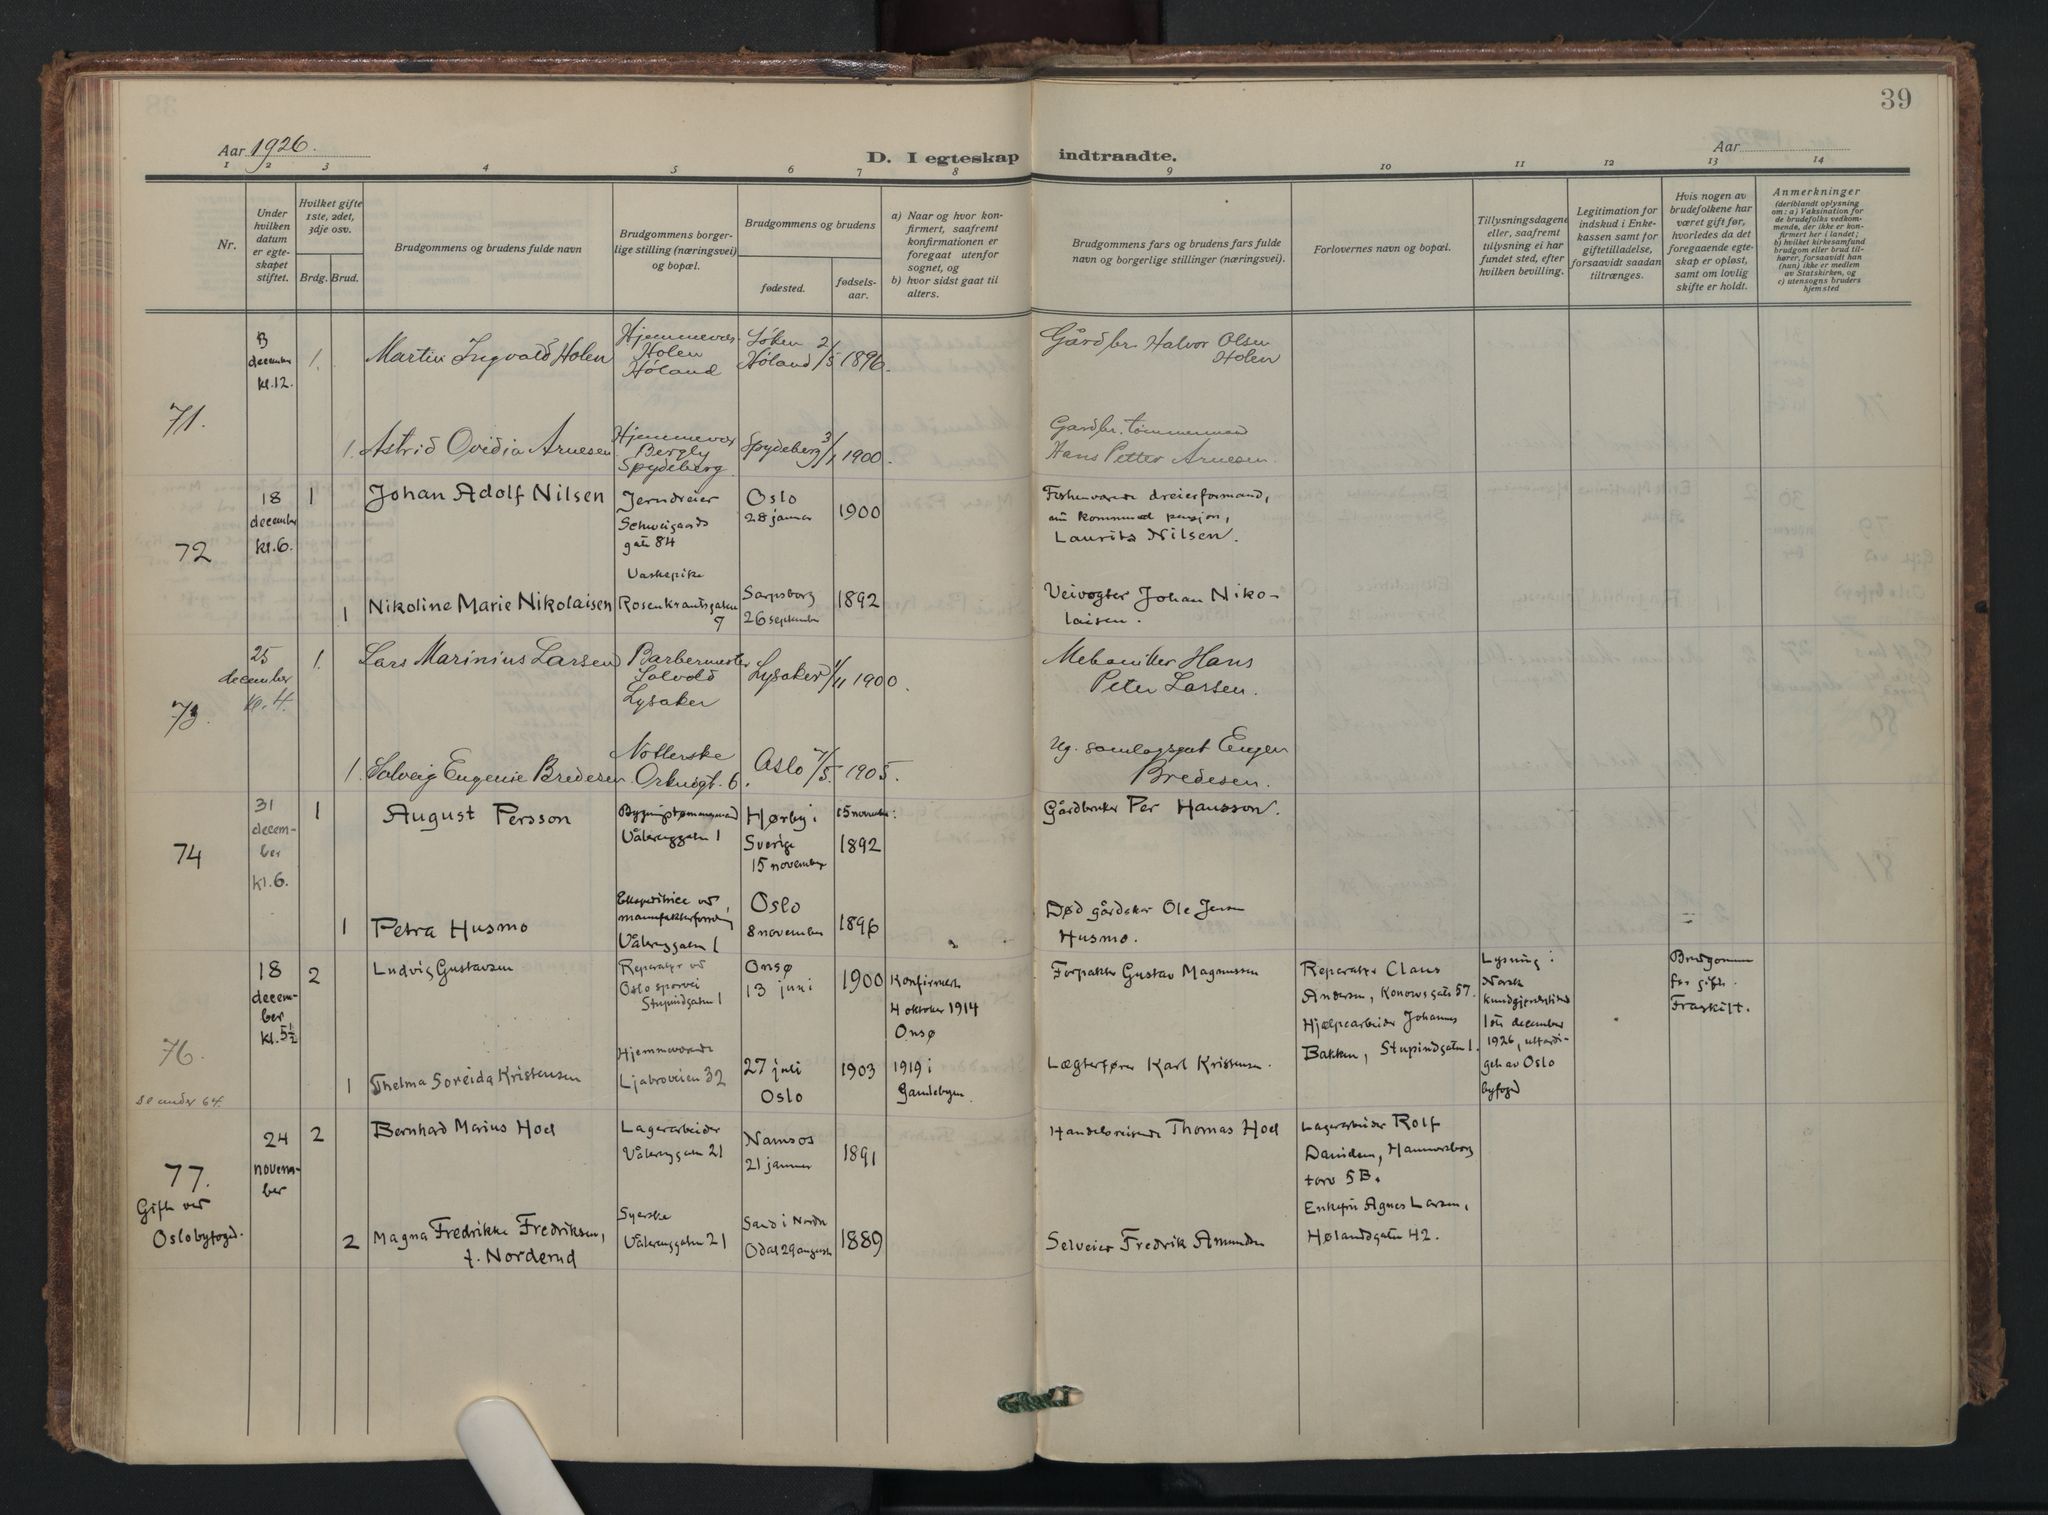 39
Aar 1926.
D. I egteskap indtraadte.
Aar
1 2 3 4 5 6 7 8 9 10 11 12 13 14
Nr.
Under
hvilken
datum
er egte-
skapet
stiftet.
Hvilket gifte
1ste, 2det,
3dje osv.
Brdg. Brud.
Brudgommens og brudens fulde navn
Brudgommens borger-
lige stilling (næringsvei)
og bopæl.
Brudgommens og brudens
fødested.
fødsels-
aar.
a) Naar og hvor kon-
firmert, saafremt
konfirmationen er
foregaat utenfor
sognet, og
b) hvor sidst gaat til
alters.
Brudgommens fars og brudens fars fulde
navn og borgerlige stillinger (næringsvei).
Forlovernes navn og bopæl.
Tillysningsdagene
eller, saafremt
tillysning ei har
fundet sted, efter
hvilken bevilling.
Legitimation for
indskud i Enke-
kassen samt for
giftetilladelse,
forsaavidt saadan
tiltrænges.
Hvis nogen av
brudefolkene har
været gift før,
hvorledes da det
foregaaende egte-
skap er opløst,
samt om lovlig
skifte er holdt.
Anmerkninger
(deriblandt oplysning
om: a) Vaksination for
de brudefolks vedkom-
mende, der ikke er kon-
firmert her i landet;
b) hvilket kirkesamfund
brudgom eller brud til-
hører, forsaavidt han
(hun) ikke er medlem
av Statskirken, og
c) utensogns bruders
hjemsted
71.
december
kl. 12.
1.
Martin Ingvald Holen
Hjemmevær.
Holen
Høland
Løken 2/5
Høland
1896.
Gårdbr. Halvor Olsen
Holen
1.
Astrid Ovidia Arnesen
Hjemmevær
Bergly
Spydeberg.
Spydeberg 3/1
1900.
Gardbr. tømmermand
Hans Petter Arnesen.
72
18
december
kl. 6.
1
Johan Adolf Nilsen
Jerndreier
Schweigaards
gate 84
Oslo
28 januar
1900
dreierformand,
Laurits Nilsen.
1
Nikoline Marie Nikolaisen
Vaskepike
Rosenkrantsgaten
7
Sarpsborg
26 september
1892
Veivogter Johan Niko-
laisen.
73.
25
december
kl. 4.
1.
Lars Marinius Larsen
Barbermester
Solvold
Lysaker
Lysaker 1/11
1900.
Mekaniker Hans
Peter Larsen.
1.
Solveig Eugenie Bredesen
Orknøgt. 6.
Oslo 7/5.
1905.
Eugen
Bredesen.
74
31
decem-
ber
kl. 6.
1
August Persson
Vålerenggaten 1
Hørby i
Sverige
15 november
15 november:
1892
Gårdbruker Per Hansson.
1
Petra Husmo
Ekspeditrice ved
manufakturforretning
Vålerenggaten 1
Oslo
8 november
1896
Død gårdeier Ole Jensen
Husmo.
76.
se under 64.
18
decem-
ber
kl. 5½
2
Ludvig Gustavsen
Reparatør ved
Oslo sporvei
Stupindgaten 1
Onsø
13 juni
1900
Konfirmert
4 oktober 1914
Onsø
Forpakter Gustav Magnussen
Reparatør Claus
Andersen, Konowsgate 57.
Hjælpearbeider Johannes
Bakken, Stupindgaten 1.
Lysning i
Norsk
kundgjørelsestidende
1ste december
1926, utfærdi-
get av Oslo
byfogd
Brudgommen
før gift.
Fraskilt.
1
Thelma Soreida Kristensen
Hjemmeværende
Ljabroveien 32
27 juli
Oslo
1903
1919 i
Gamlebyen.
Lægterfører Karl Kristensen.
77.
Gift ved
Oslo byfogd.
24
novem-
ber
2
Bernhard Marius Hoel
Lagerarbeider
Vålerenggaten 21
Namsos
21 januar
1891
Handelsreisende Thomas Hoel
Lagerarbeider Rolf
Davidsen, Hammersborg
torv 5 B.
Enkefru Agnes Larsen,
Hølandsgaten 42.
2
Magna Fredrikke Fredriksen,
f. Norderud
Syerske
Vålerenggaten 21
Sand i Nordre
Odal 29 august
1889
Selveier Fredrik Amundsen